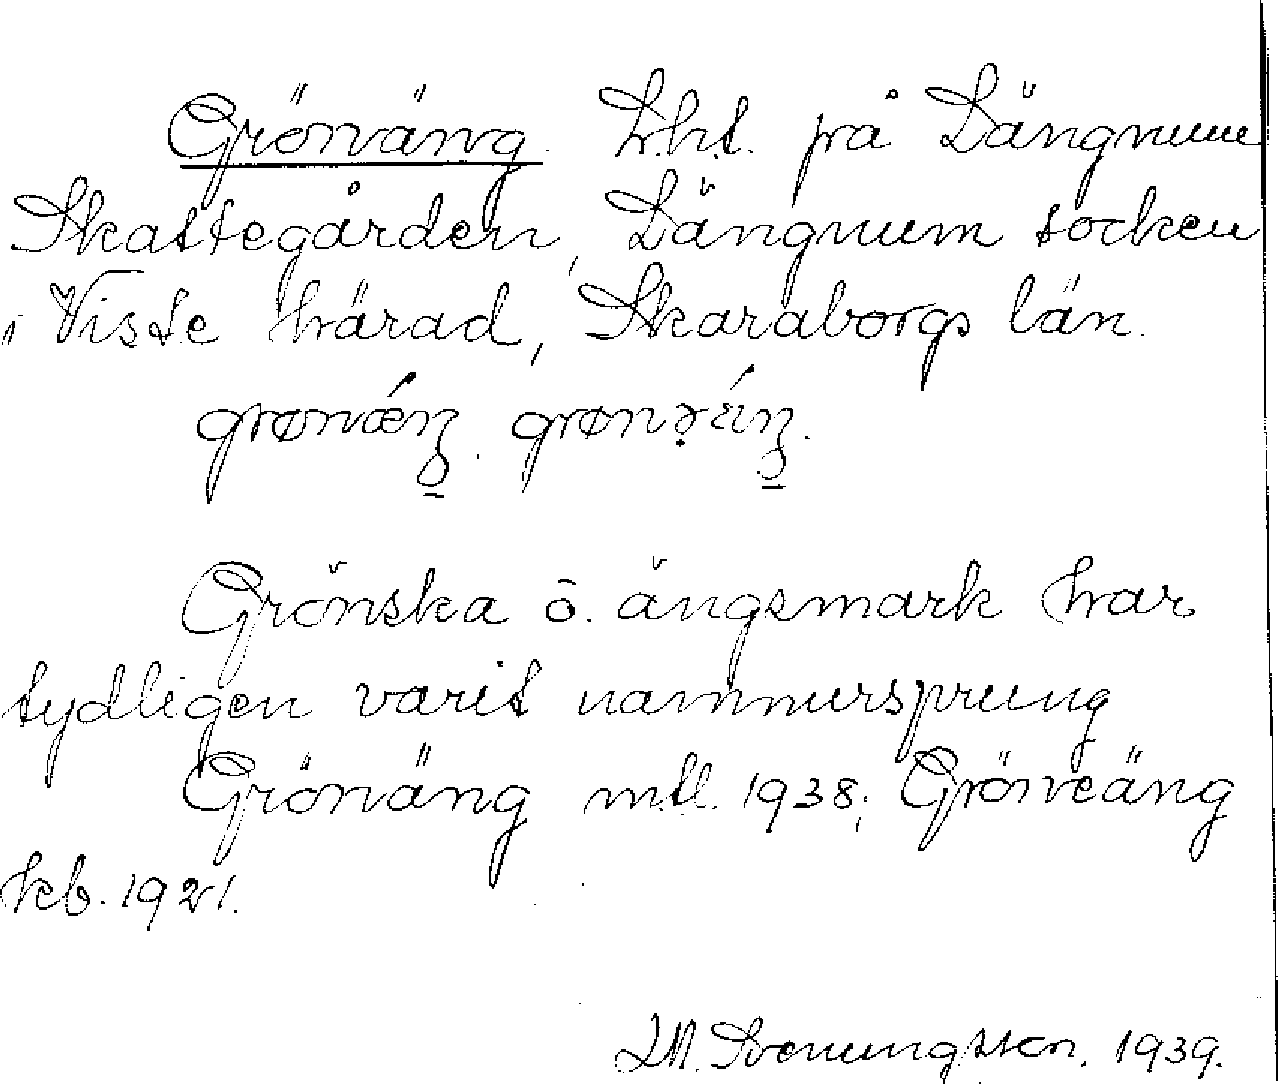 Grönäng. Lht. på Längnum
Skattegården, Längnum socken
i Viste härad, Skaraborgs län.
Grönska o. ängsmark har
tydligen varit namnursprung
Grönäng mtl. 1938; Gröneäng
kb. 1921.
Svenungsson. 1939.